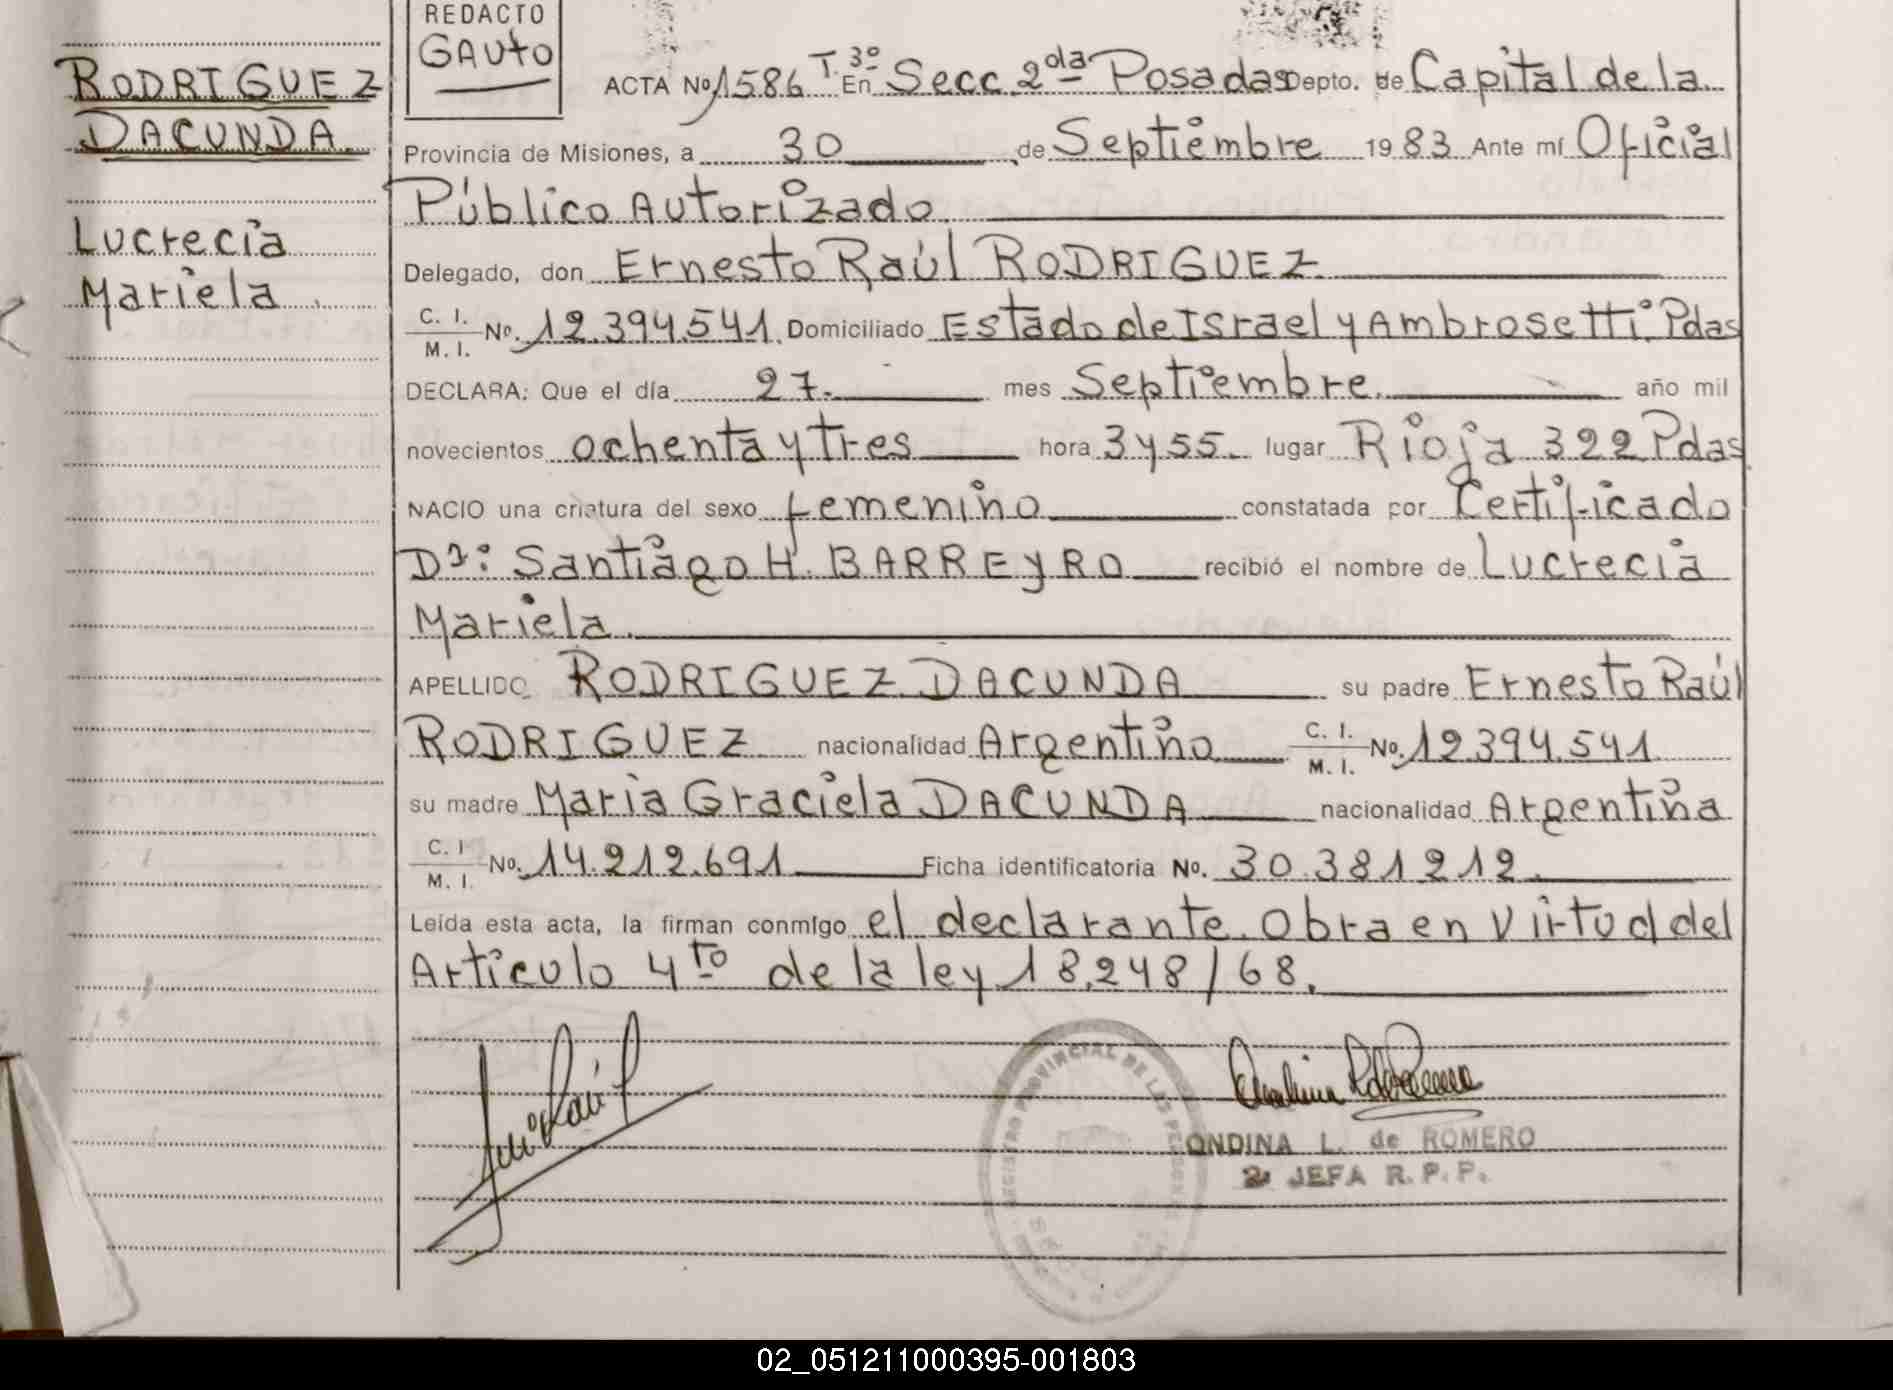 REDACTO
GAUto
RODRIGUEZ
DACUNDA.
Lucrecia
Mariela
ACTA Nº 1586 T. 3º En Secc. 2da Posadas Depto. de Capital de la
Provincia de Misiones, a 30 de Septiembre 1983 Ante mí Oficial
Público Autorizado
Delegado, don Ernesto Raúl RODRIGUEZ
C. I. / M. I. Nº. 12.394.541. Domiciliado Estado de Israel y Ambrosetti. Pdas
DECLARA: Que el día 27. mes Septiembre. año mil
novecientos ochenta y tres hora 3 y 55. lugar Rioja 322 Pdas
NACIO una criatura del sexo femenino constatada por Certificado
Dr: Santiago H. BARREyRO recibió el nombre de Lucrecia
Mariela.
APELLIDO RODRIGUEZ DACUNDA su padre Ernesto Raúl
RODRIGUEZ nacionalidad Argentino C. I. / M. I. Nº. 12.394.541
su madre Maria Graciela DACUNDA nacionalidad Argentina
C. I / M. I. Nº. 14.212.691 Ficha identificatoria Nº. 30.381212.
Leída esta acta, la firman conmigo el declarante. Obra en Virtud del
Artículo 4to de la ley 18.248/68.
REGISTRO PROVINCIAL DE LAS PERSONAS
ONDINA L. de ROMERO
2ª JEFA R. P. P.
02_051211000395-001803